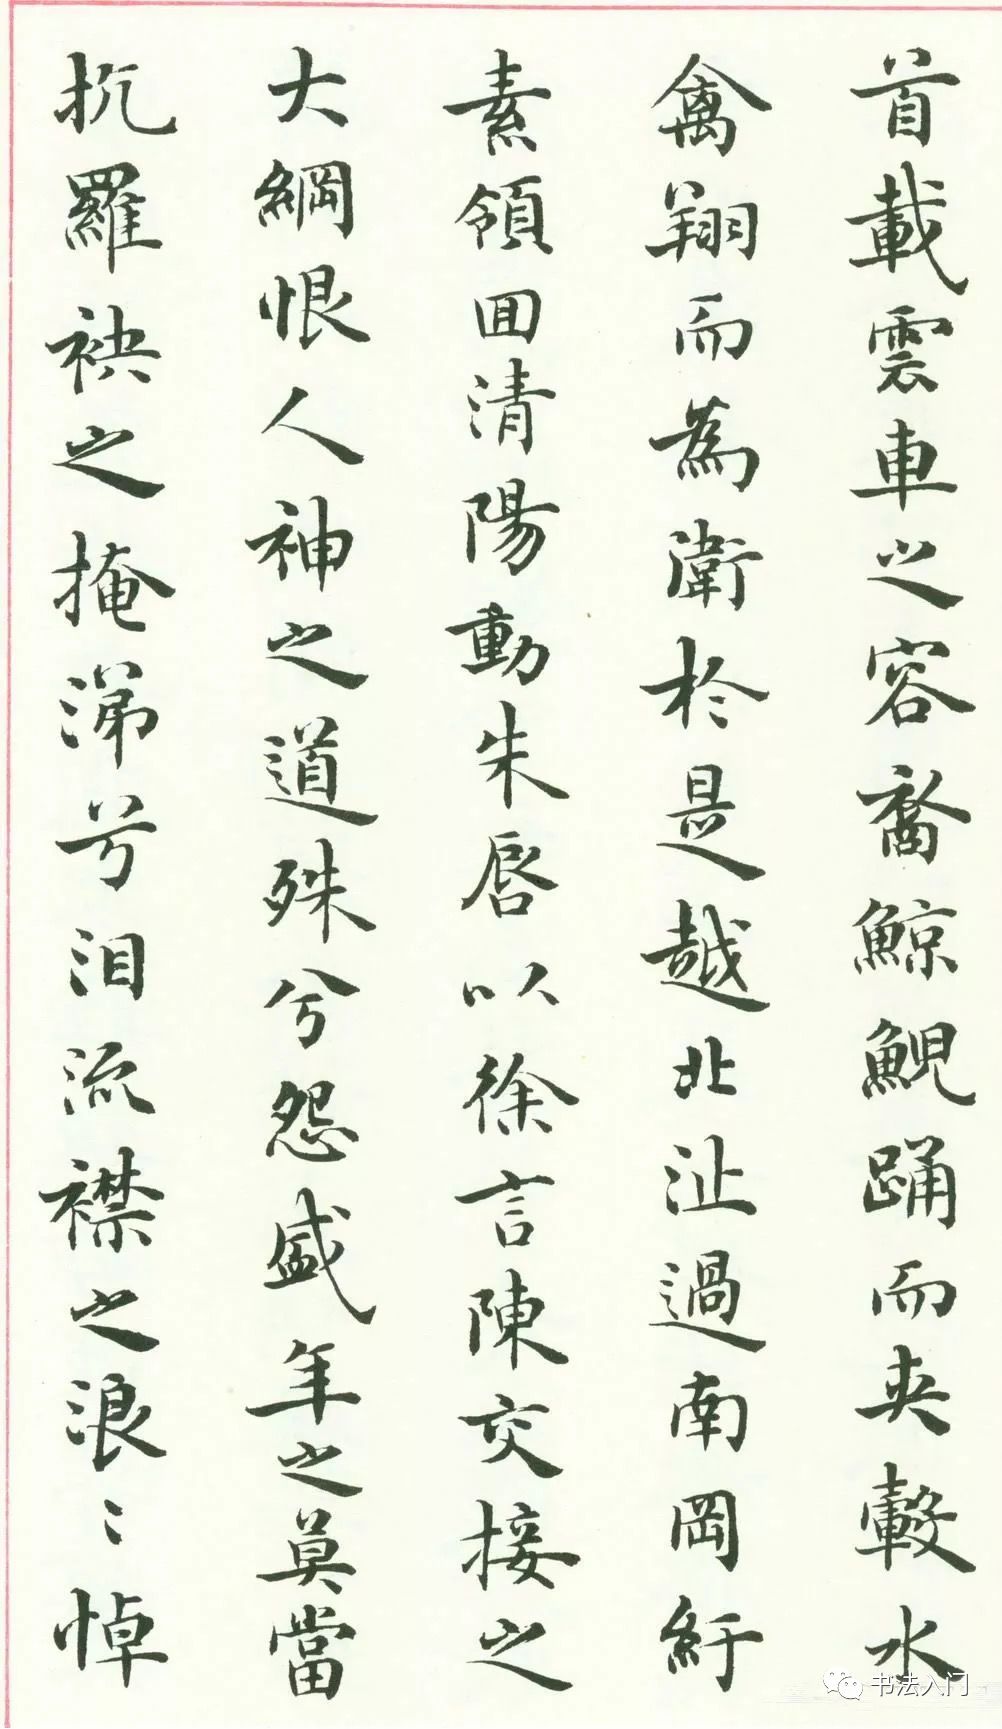 首載雲車之容裔鯨鯢踊而夹轂水
禽翔而為衛於是越北沚過南岡紆
素領回清陽動朱唇以徐言陳交接之
大綱恨人神之道殊兮怨盛年之莫當
抗羅袂之掩涕兮泪流襟之浪〻悼
书法入门